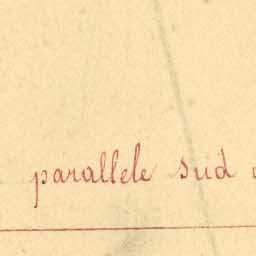 parallele sud